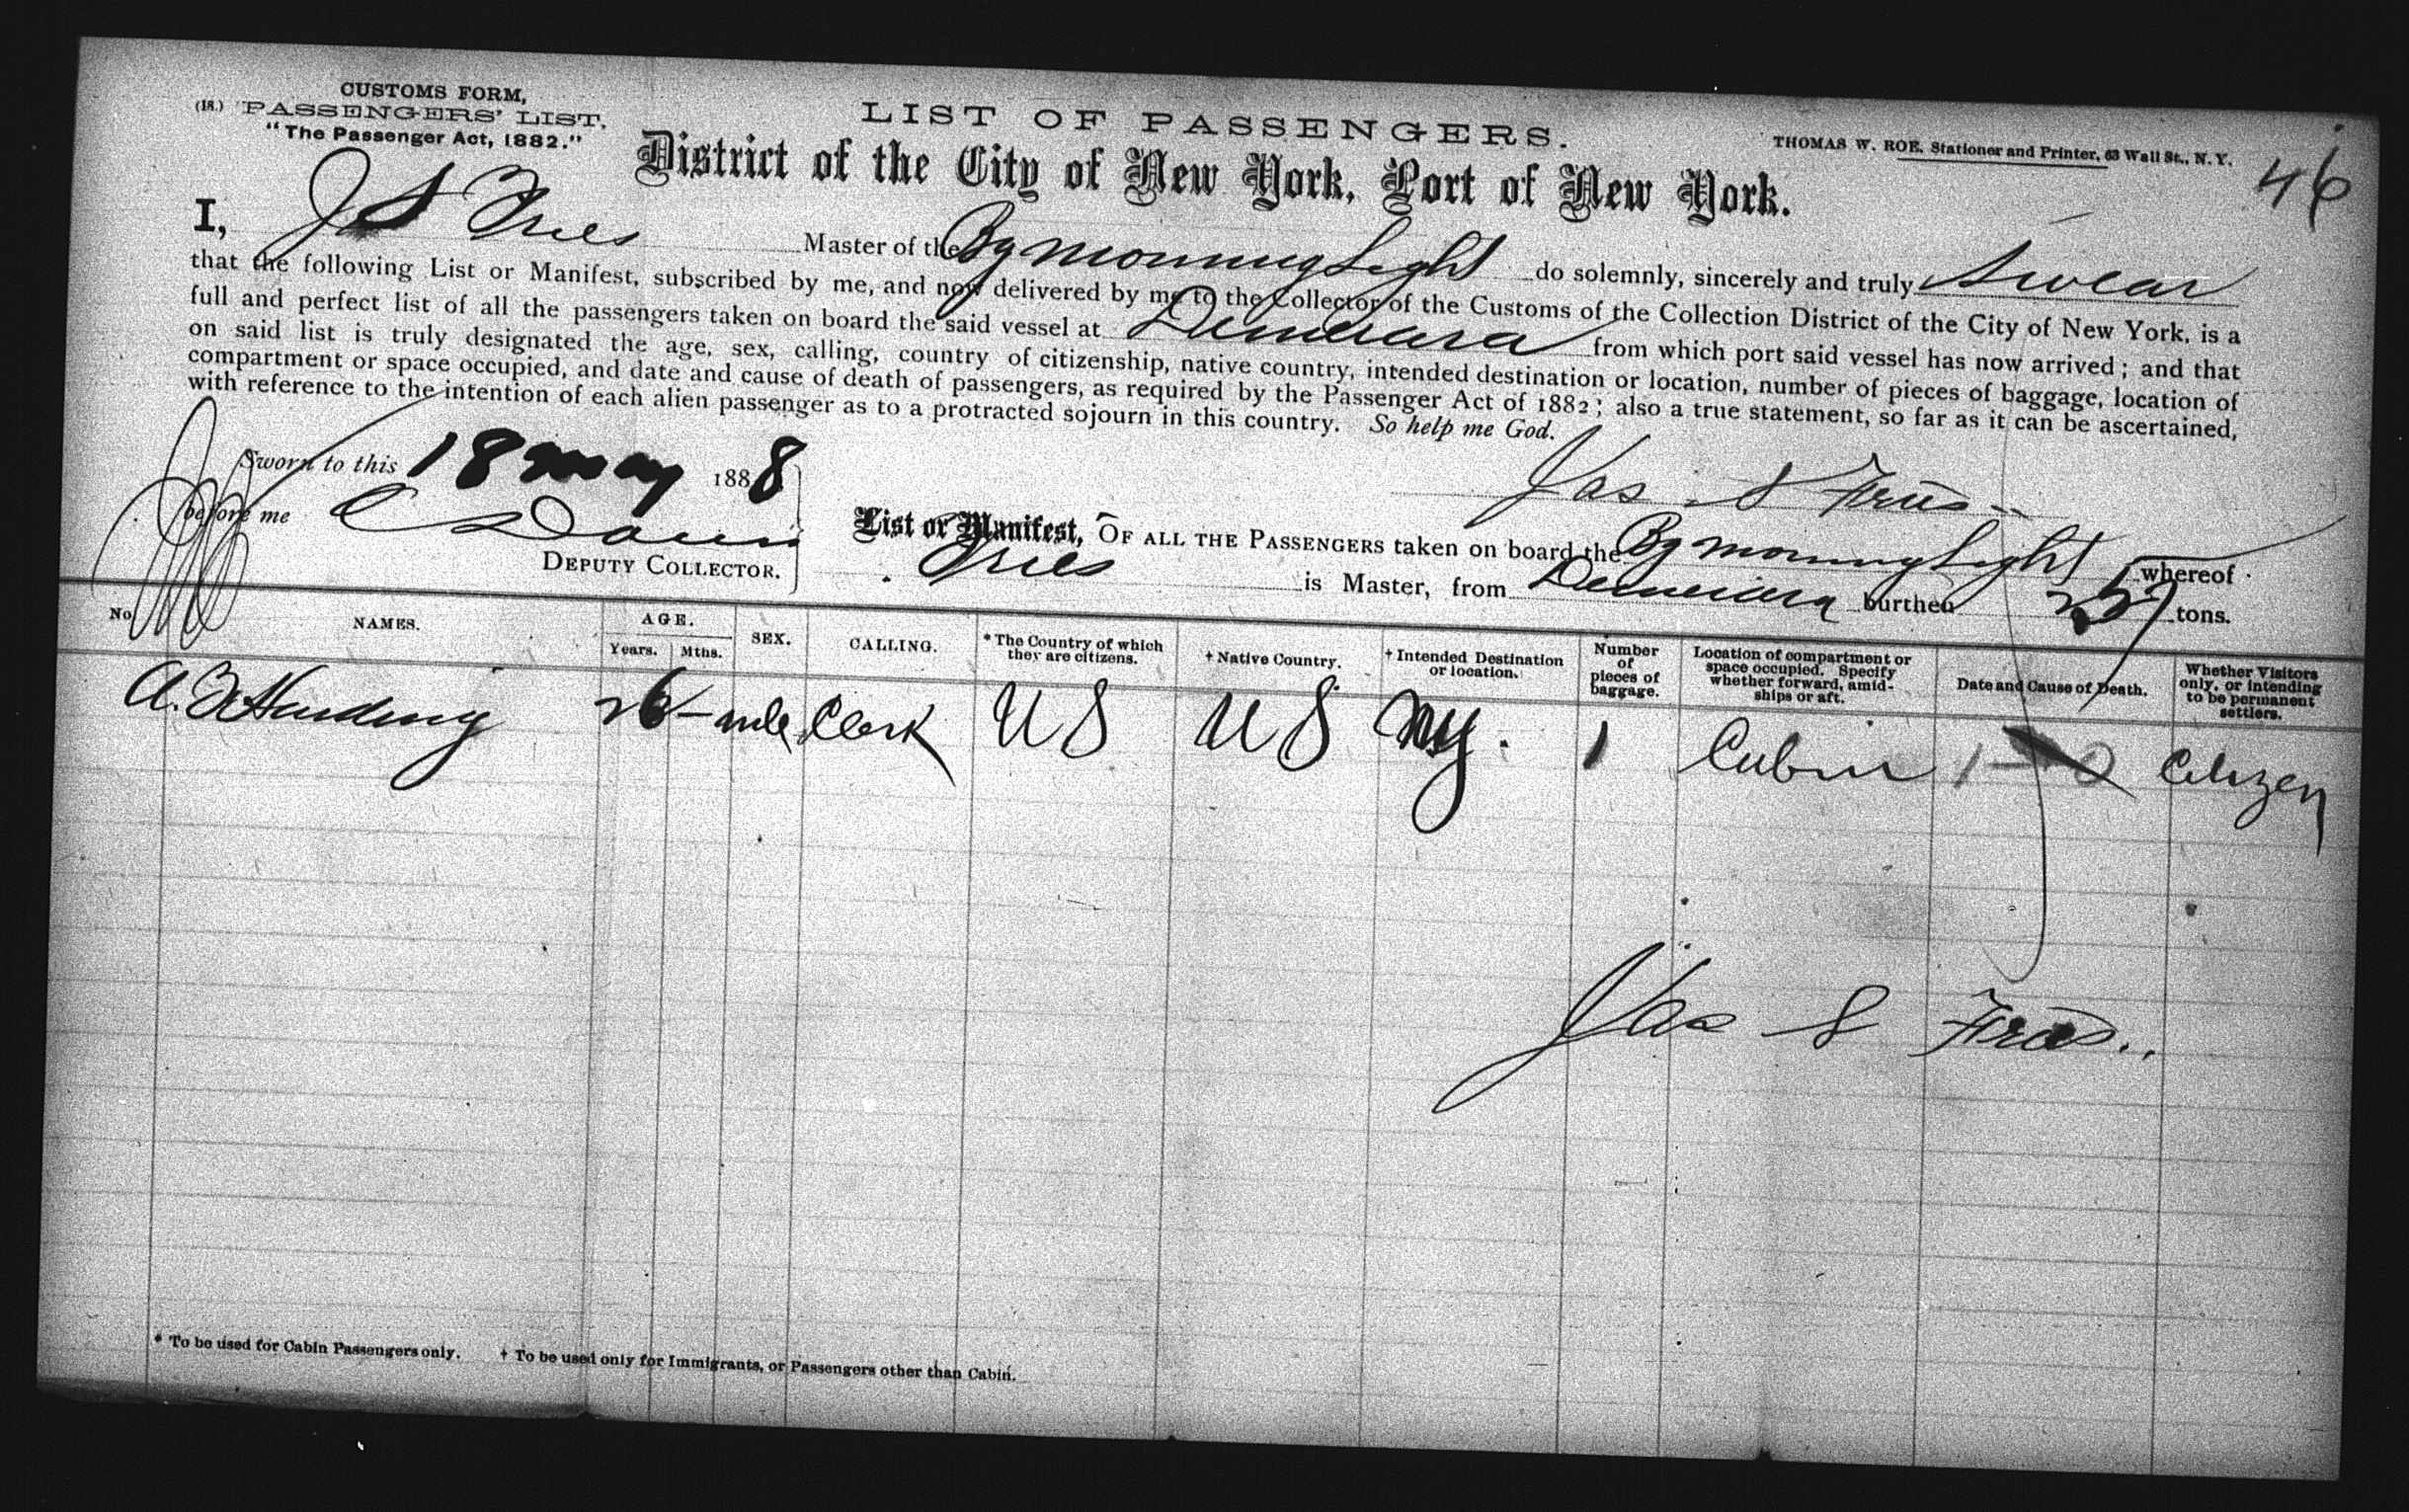 CUSTOMS FORM,
(18.) PASSENGERS' LIST.
"The Passenger Act, 1882."
LIST OF PASSENGERS.
THOMAS W. ROE, Stationer and Printer, 63 Wall St., N. Y.
46
District of the City of New York, Port of New York.
I, J S Master of the Bg Morning Light do solemnly, sincerely and truly Swear
that the following List or Manifest, subscribed by me, and now delivered by me to the Collector of the Customs of the Collection District of the City of New York, is a
full and perfect list of all the passengers taken on board the said vessel at Demerara from which port said vessel has now arrived; and that
on said list is truly designated the age, sex, calling, country of citizenship, native country, intended destination or location, number of pieces of baggage, location of
compartment or space occupied, and date and cause of death of passengers, as required by the Passenger Act of 1882; also a true statement, so far as it can be ascertained,
with reference to the intention of each alien passenger as to a protracted sojourn in this country. So help me God.
Sworn to this 18 May 1888
Jas S
before me
DEPUTY COLLECTOR.
List or Manifest, OF ALL THE PASSENGERS taken on board the Bg Morning Light whereof
is Master, from Demerara burthen tons.
No. NAMES. AGE. Years. Mths. SEX. CALLING. * The Country of which they are citizens. † Native Country. † Intended Destination or location. Number of pieces of baggage. Location of compartment or space occupied. Specify whether forward, amidships or aft. Date and Cause of Death. Whether Visitors only, or intending to be permanent settlers.
A. Harding 26 – male Clerk US US NY. 1 Cabin Citizen
Jas S
* To be used for Cabin Passengers only. † To be used only for Immigrants, or Passengers other than Cabin.